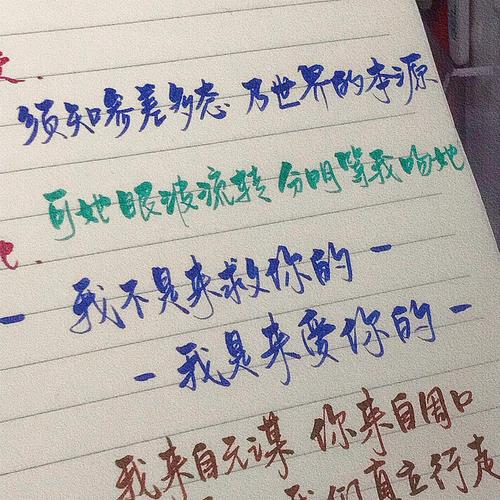 须知参差多态 乃世界的本源
可她眼波流转 分明等我吻她
- 我不是来救你的 -
- 我是来爱你的 -
我来自元谋 你来自周口
我们直立行走